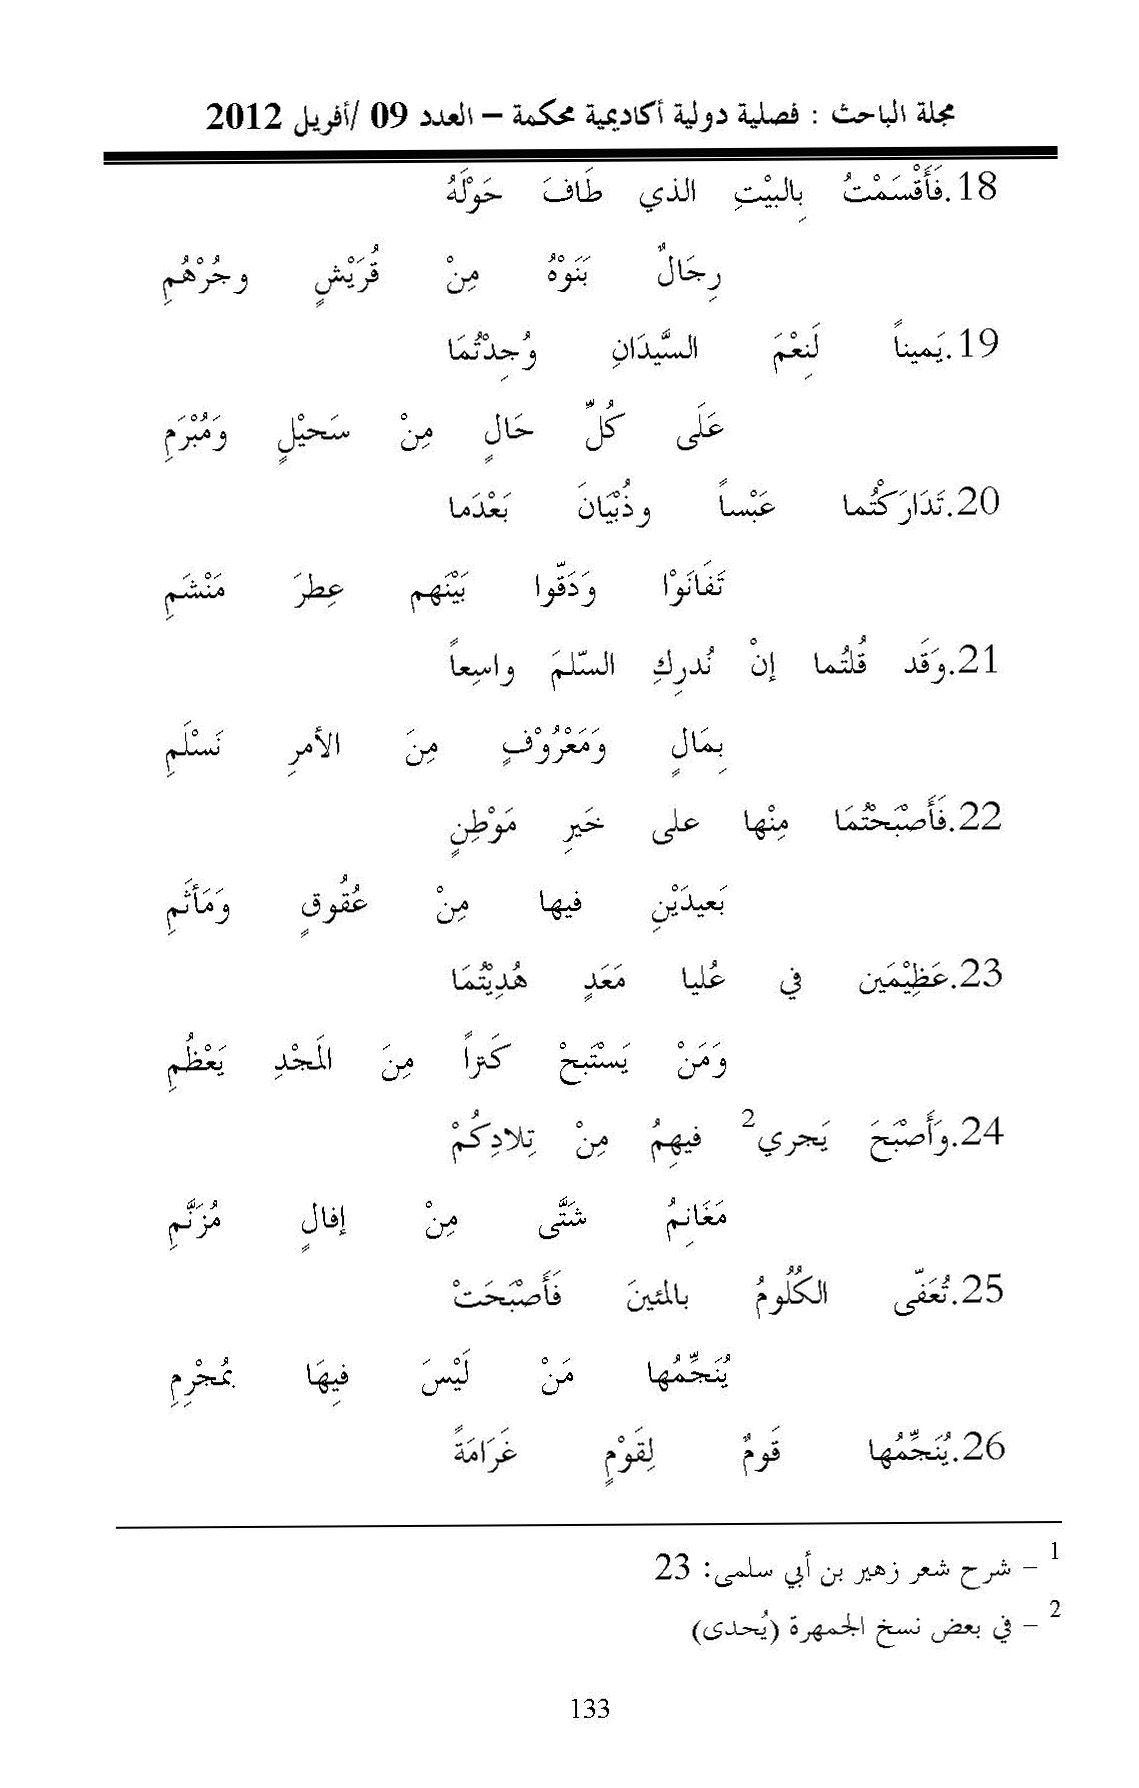 مجلة الباحث : فصلية دولية أكاديمية محكمة – العدد 09 /أفريل 2012
18.فَأَقْسَمْتُ بِالبيْتِ الذي طَافَ حَوْلَهُ
رِجَالٌ بَنَوْهُ مِنْ قُرَيْشٍ وجُرْهُمِ
19.يَميناً لَنِعْمَ السَّيدَانِ وُجِدْتُمَا
عَلَى كُلِّ حَالٍ مِنْ سَحيْلٍ وَمُبْرَمِ
20.تَدَارَكْتُما عَبْساً وذُبْيَانَ بَعْدَما
تَفَانَوْا وَدَقّوا بَيْنَهم عِطرَ مَنْشَمِ
21.وَقَد قُلتُما إنْ نُدرِكِ السّلمَ واسِعاً
بِمَالٍ وَمَعْرُوْفٍ مِنَ الأمرِ نَسْلَمِ
22.فَأَصْبَحْتُمَا مِنْها على خَيرِ مَوْطِنٍ
بَعيدَيْنِ فيها مِنْ عُقُوقٍ وَمَأثَمِ
23.عَظِيْمَين في عُليا مَعَدٍ هُدِيْتُمَا
وَمَنْ يَسْتَبحْ كَنزاً مِنَ المَجْدِ يَعْظُمِ
24.وَأَصْبَحَ يَجري2 فيهِمُ مِنْ تِلادِكُمْ
مَغَانِمُ شَتَّى مِنْ إفالٍ مُزَنَّمِ
25.تُعَفّى الكُلُومُ بالمئينَ فَأَصْبَحَتْ
يُنَجِّمُها مَنْ لَيْسَ فيهَا بمُجْرِمِ
26.يُنَجِّمُها قَومٌ لِقَوْمٍ غَرَامَةً
1 – شرح شعر زهير بن أبي سلمى: 23
2 – في بعض نسخ الجمهرة (يُحدى)
133